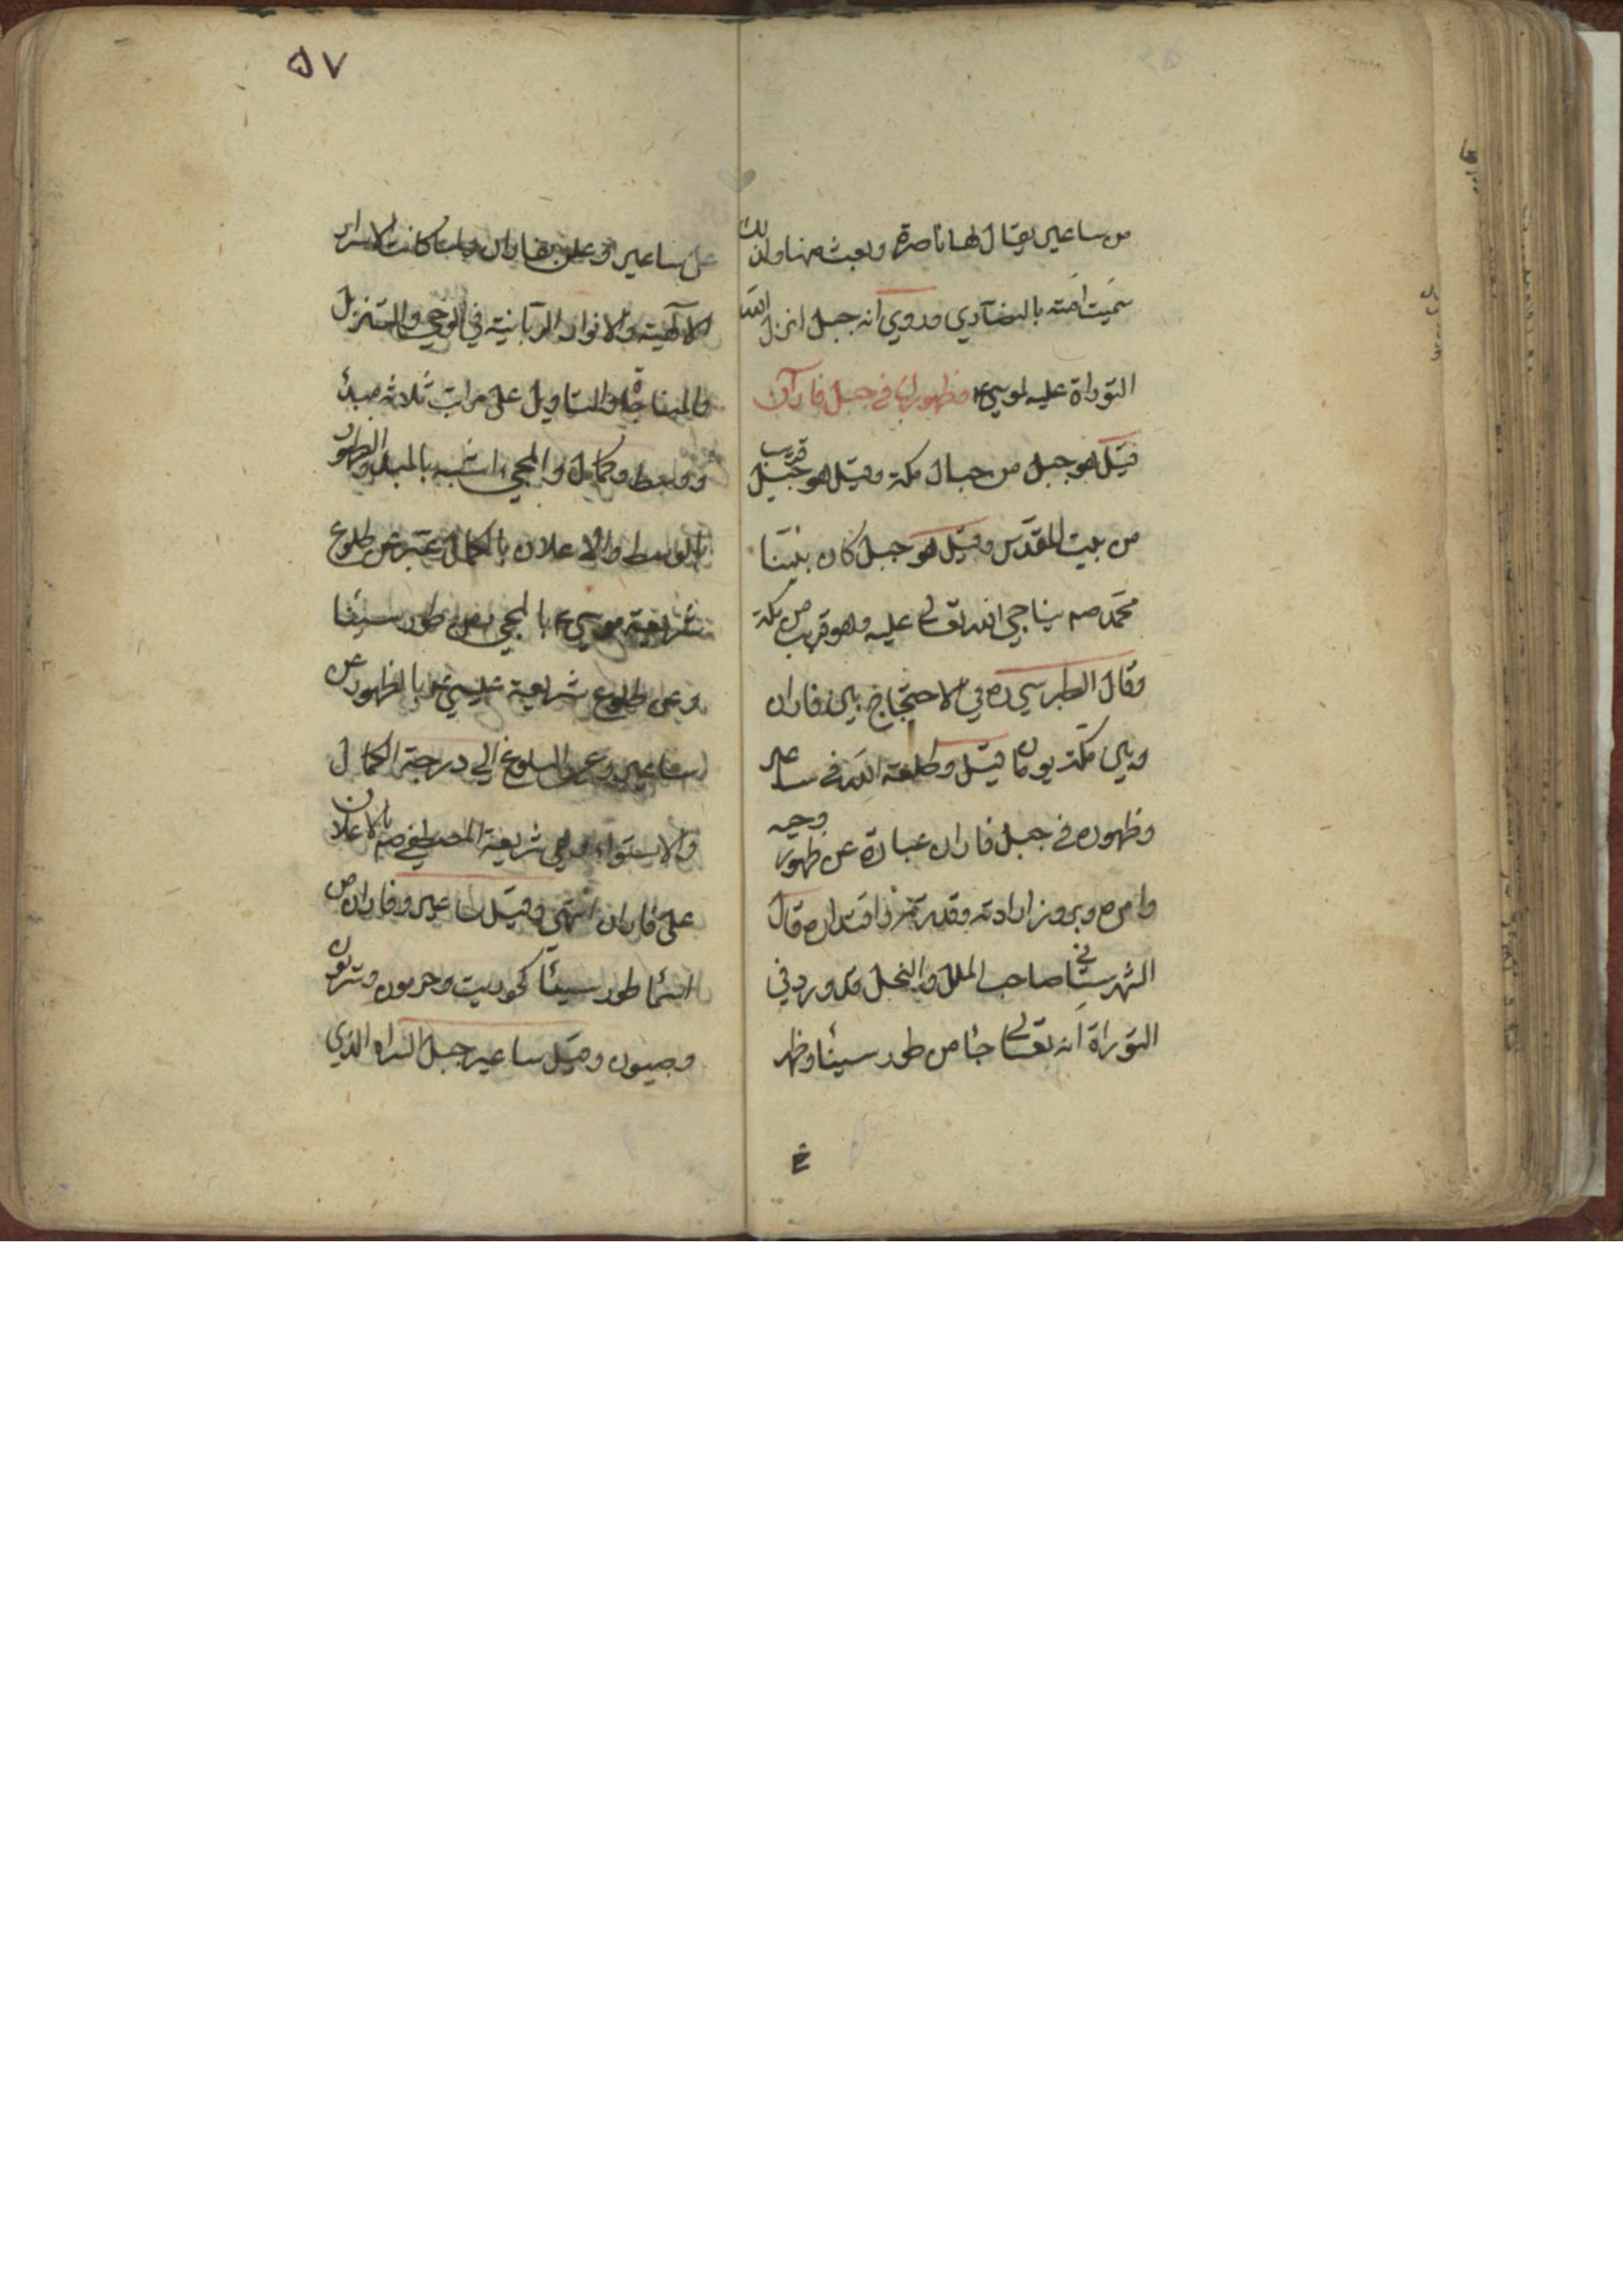 من ساعير يقال لها ناصرة وبعث منها ولذلك
سميت امته بالنصاري وروي انه جبل انزل الله
التوراة عليه لموسي ع وظهورك في جبل فاران
قيل هو جبل من جبال مكة وقيل هو جبل قريب
من بيت المقدس وقيل هو جبل كان نبينا
محمد صم يناجي الله تعالي عليه وهو قريب من مكة
وقال الطبرسي ره في الاحتجاج فاران
قيل وطلعة الله في ساعير
وظهوره في جبل فاران عبارة عن ظهور وحيه
وامره وبروز ارادته وقدرته واقتداره قال
الشهرستاني صاحب الملل والنحل قد ورد في
التوراة انه تعالي جا من طور سينا وظهر
۵۷
علي ساعير وعلن بفاران ولما كانت الاسرار
الالهية والانوار الربانية في الوحي والتنزيل
والمناجاة والتاويل علي مراتب ثلاثة مبدا
ووسط وكمال والمجي اشبه بالمبدا والظهور
بالوسط والاعلان بالكمال عبر عن طلوع
شريعة موسي ع بالمجي من طور سينا
وعن طلوع شريعة عيسي ع بالظهور من
ساعير وعن البلوغ الي درجة الكمال
والاستواء وهي شريعة المصطفي صم بالاعلان
علي فاران انتهي وقيل ساعير وفاران من
اسما طور سينا كحوريت وحرمون
وصيون وقيل ساعير جبل السراه الذي